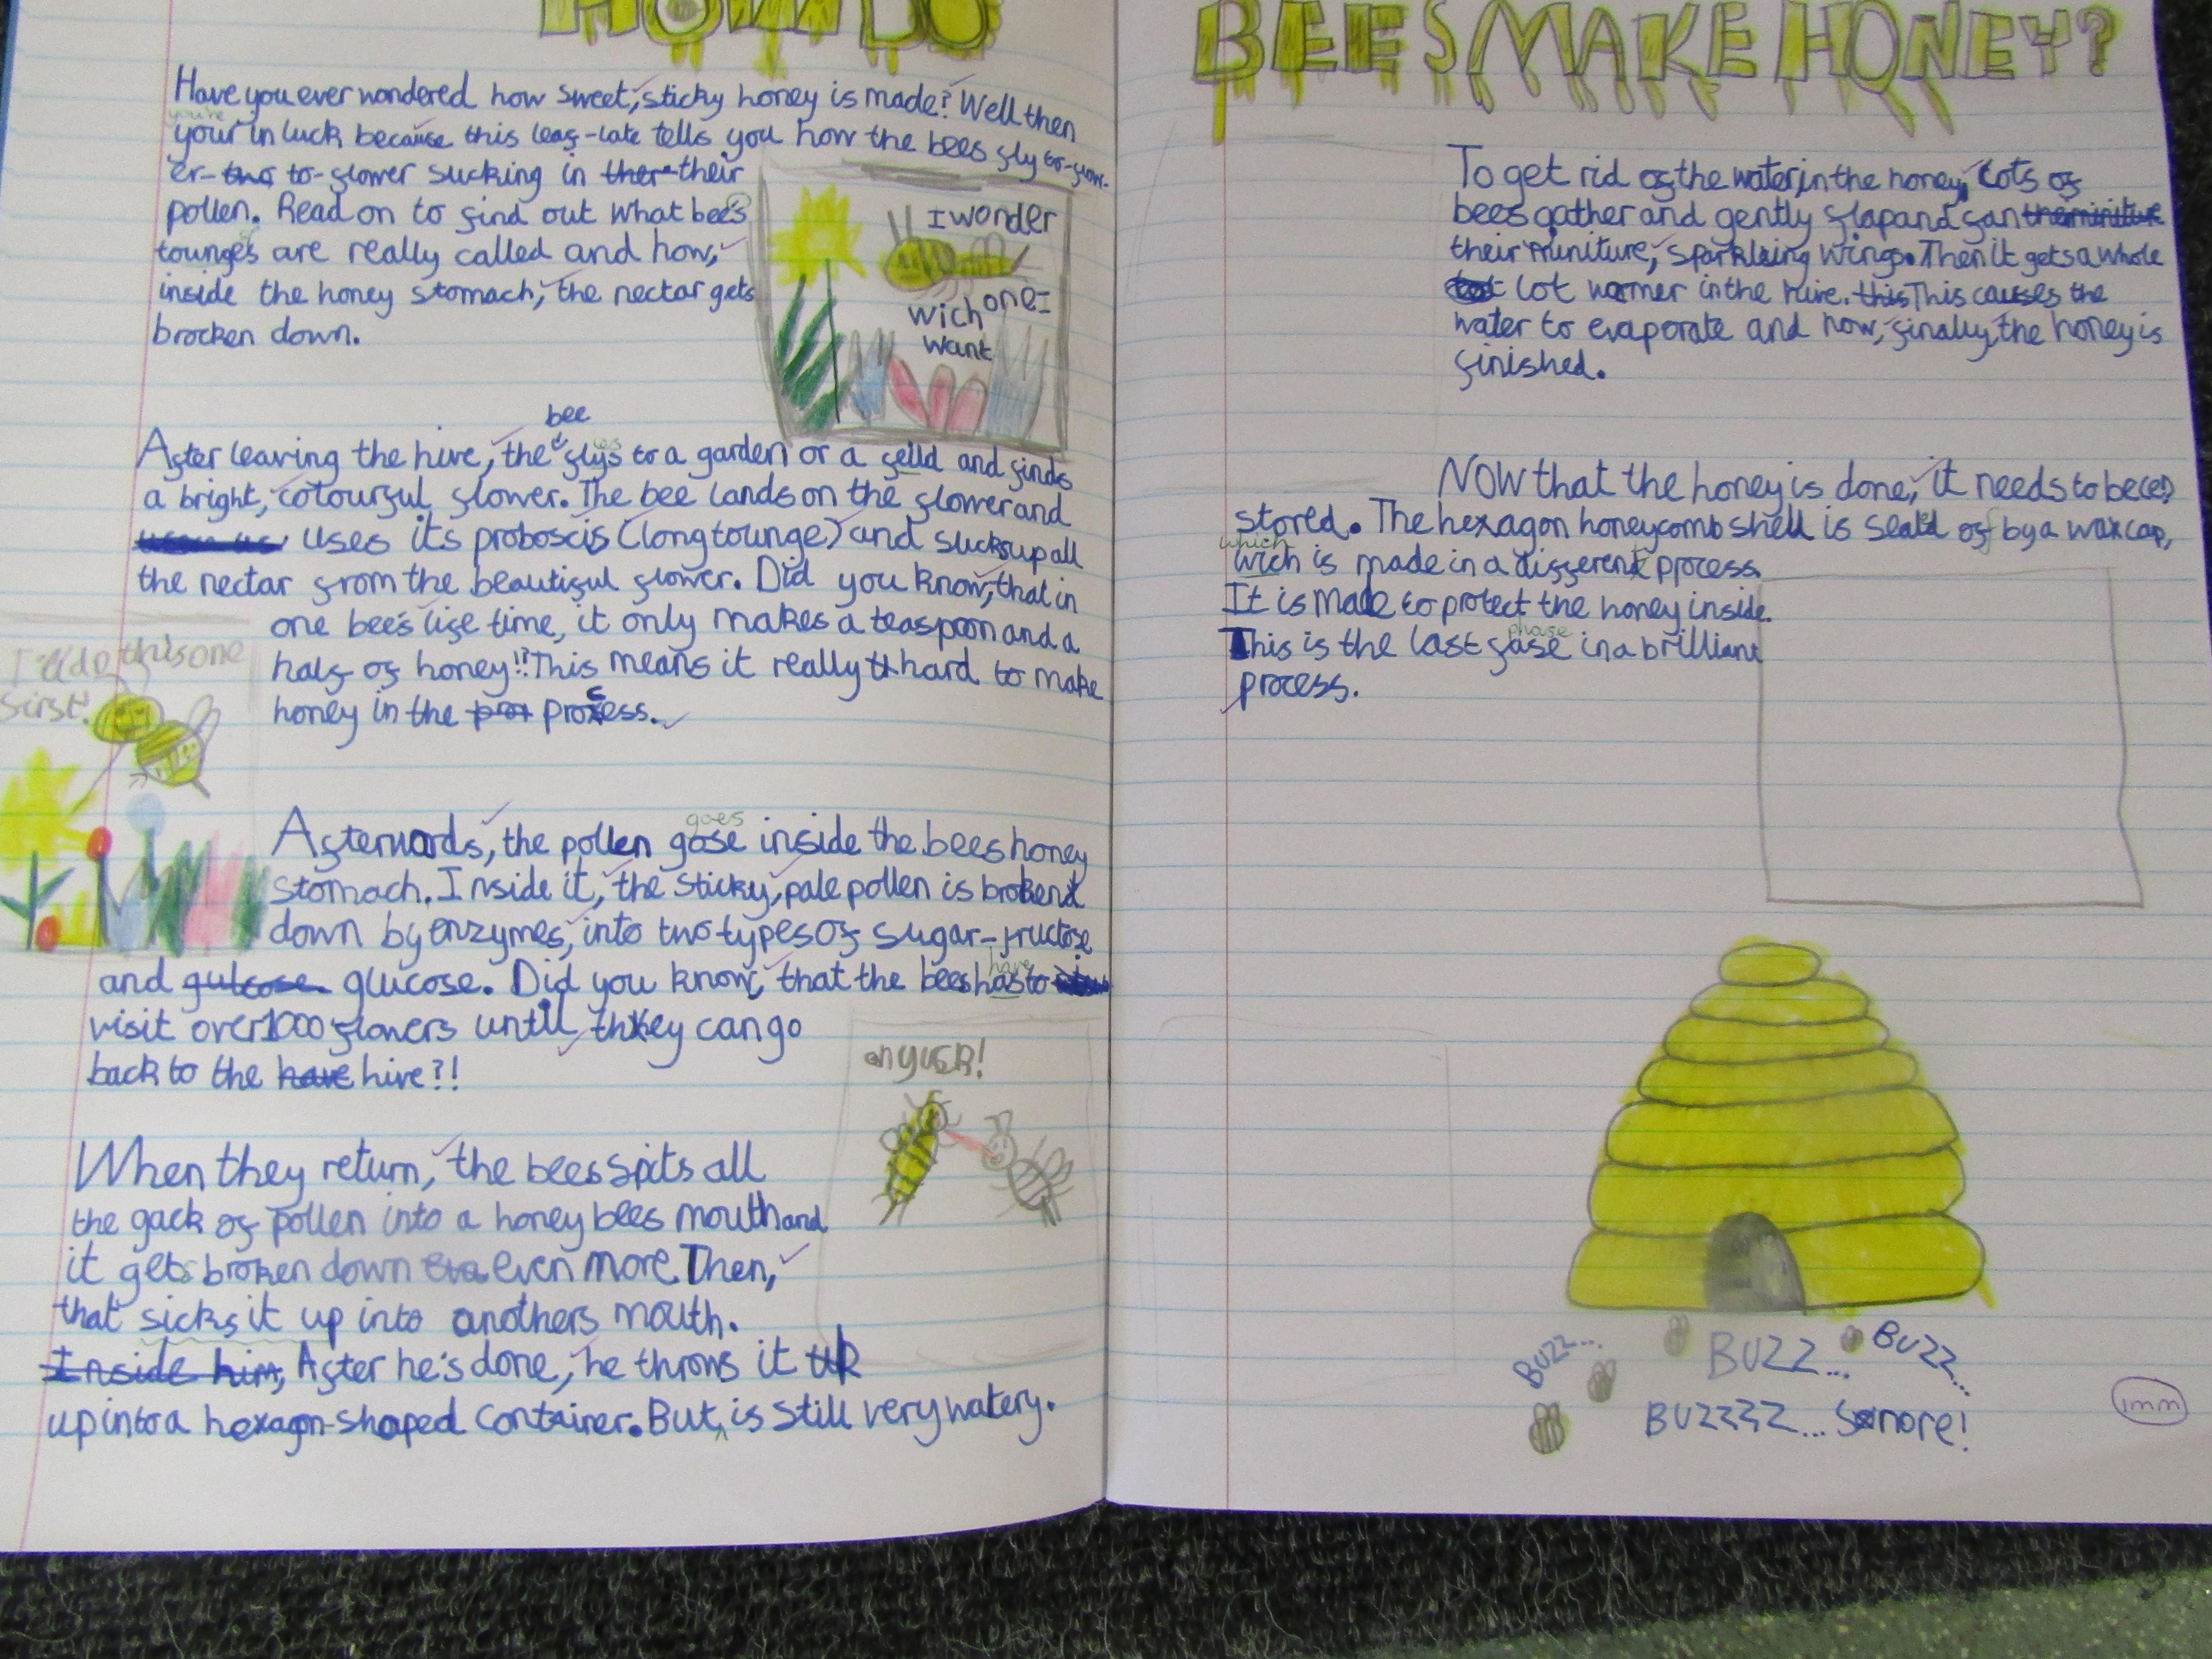 HOW DO
BEES MAKE HONEY?
Have you ever wondered how sweet, sticky honey is made? Well then
you're
your in luck because this leaf-late tells you how the bees fly to-flow-
er-two to-flower sucking in there their
pollen. Read on to find out what bee's
tounges are really called and how,
inside the honey stomach, the nectar gets
brocken down.
I wonder
wich one I
want
bee
After leaving the hive, the flys to a garden or a feild and finds
a bright, colourful flower. The bee lands on the flower and
uses its proboscis (long tounge) and sucks up all
the nectar from the beautiful flower. Did you know, that in
one bee's life time, it only makes a teaspoon and a
half of honey!? This means it really hard to make
honey in the process.
I'll do this one
first!
goes
Afterwards, the pollen gose inside the bees honey
stomach. Inside it, the sticky, pale pollen is broken
down by enzymes, into two types of sugar-fructose
have
and gulcose. glucose. Did you know, that the bees has to
visit over 1000 flowers until they can go
back to the have hive?!
oh yuck!
When they return, the bees spits all
the gack of pollen into a honey bees mouth and
it gets broken down even more. Then,
that sicks it up into anothers mouth.
Inside him, After he's done, he throws it
up into a hexagon-shaped container. But, is still very watery.
To get rid of the water, in the honey, lots of
bees gather and gently flap and fan
their miniture, sparkling wings. Then it gets a whole
lot warmer in the hive. this This causes the
water to evaporate and now, finally, the honey is
finished.
NOW that the honey is done, it needs to be
stored. The hexagon honeycomb shell is seald of by a wax cap,
which
wich is made in a different process.
It is made to protect the honey inside.
phase
This is the last fase in a brilliant
process.
BUZZ...
BUZZ...
BUZZ...
BUZZZZ... Snore!
1mm